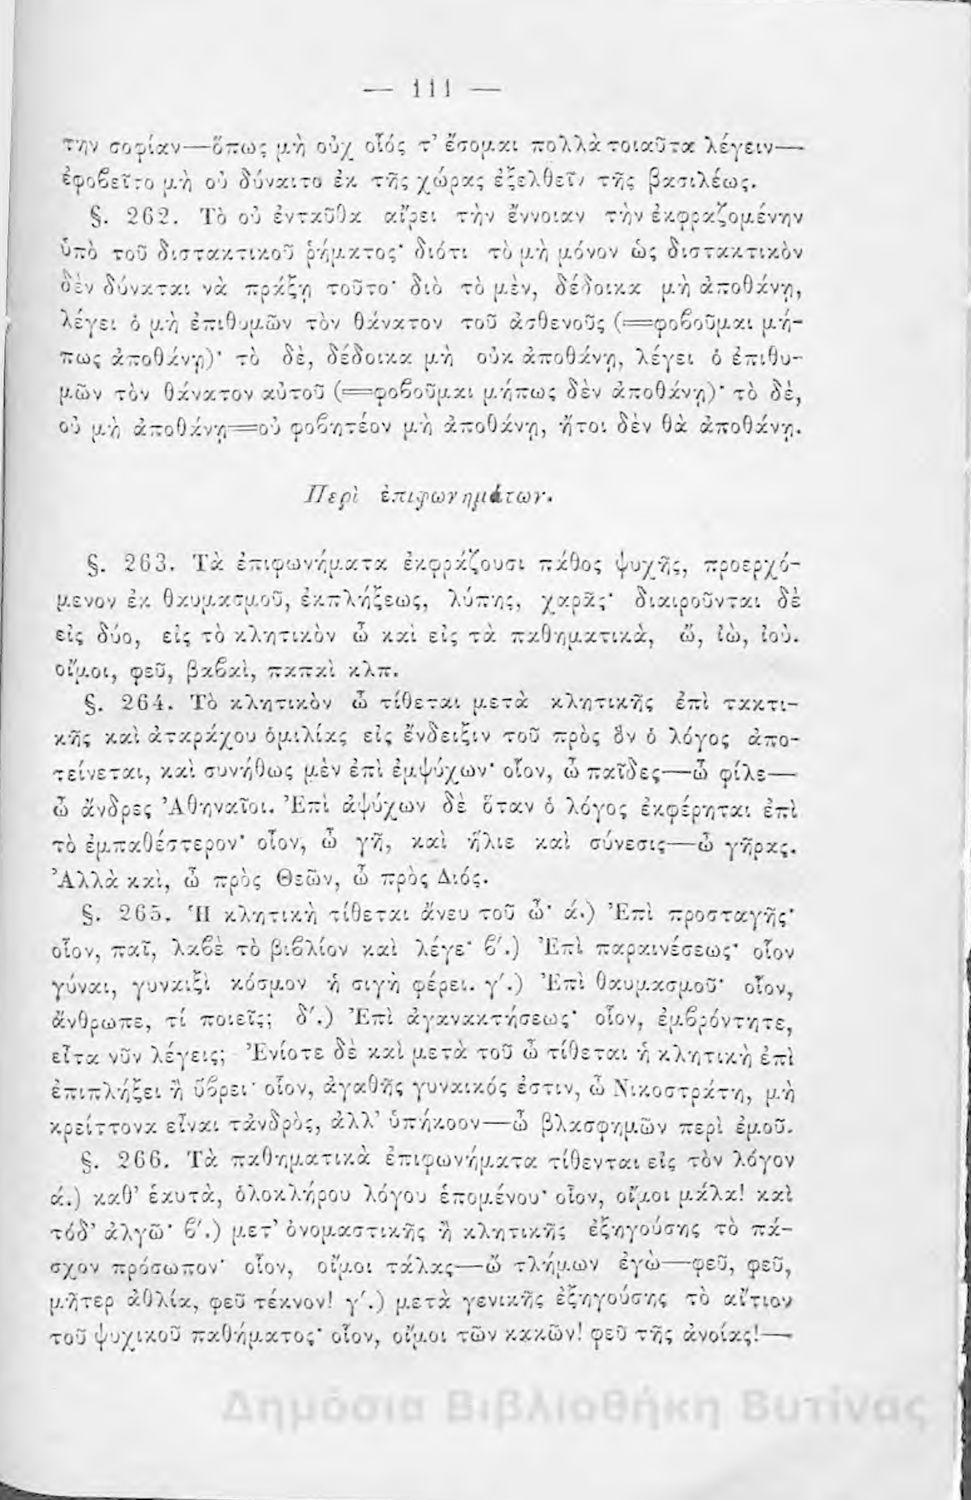 — 111 —
την σοφίαν—ὅπως μὴ οὐχ οἷός τ’ ἔσομαι πολλὰ τοιαῦτα λέγειν—
ἐφοβεῖτο μὴ οὐ δύναιτο ἐκ τῆς χώρας ἐξελθεῖν τῆς βασιλέως.
§. 262. Τὸ οὐ ἐνταῦθα αἴρει τὴν ἔννοιαν τὴν ἐκφραζομένην
ὑπὸ τοῦ διστακτικοῦ ῥήματος· διότι τὸ μὴ μόνον ὡς διστακτικὸν
δὲν δύναται νὰ πράξῃ τοῦτο· διὸ τὸ μὲν, δέδοικα μὴ ἀποθάνῃ,
λέγει ὁ μὴ ἐπιθυμῶν τὸν θάνατον τοῦ ἀσθενοῦς (=φοβοῦμαι μή-
πως ἀποθάνῃ)· τὸ δὲ, δέδοικα μὴ οὐκ ἀποθάνῃ, λέγει ὁ ἐπιθυ-
μῶν τὸν θάνατον αὐτοῦ (=φοβοῦμαι μήπως δὲν ἀποθάνῃ)· τὸ δὲ,
οὐ μὴ ἀποθάνῃ=οὐ φοβητέον μὴ ἀποθάνῃ, ἤτοι δὲν θὰ ἀποθάνῃ.
Περὶ ἐπιφωνημάτων.
§. 263. Τὰ ἐπιφωνήματα ἐκφράζουσι πάθος ψυχῆς, προερχό-
μενον ἐκ θαυμασμοῦ, ἐκπλήξεως, λύπης, χαρᾶς· διαιροῦνται δὲ
εἰς δύο, εἰς τὸ κλητικὸν ὦ καὶ εἰς τὰ παθηματικὰ, ὤ, ἰὼ, ἰού.
οἴμοι, φεῦ, βαβαὶ, παπαὶ κλπ.
§. 264. Τὸ κλητικὸν ὦ τίθεται μετὰ κλητικῆς ἐπὶ τακτι-
κῆς καὶ ἀταράχου ὁμιλίας εἰς ἔνδειξιν τοῦ πρὸς ὃν ὁ λόγος ἀπο-
τείνεται, καὶ συνήθως μὲν ἐπὶ ἐμψύχων· οἷον, ὦ παῖδες—ὦ φίλε—
ὦ ἄνδρες Ἀθηναῖοι. Ἐπὶ ἀψύχων δὲ ὅταν ὁ λόγος ἐκφέρηται ἐπὶ
τὸ ἐμπαθέστερον· οἷον, ὦ γῆ, καὶ ἥλιε καὶ σύνεσις—ὦ γῆρας.
Ἀλλὰ καὶ, ὦ πρὸς Θεῶν, ὦ πρὸς Διός.
§. 265. Ἡ κλητικὴ τίθεται ἄνευ τοῦ ὦ· ά.) Ἐπὶ προσταγῆς·
οἷον, παῖ, λαβὲ τὸ βιβλίον καὶ λέγε· β΄.) Ἐπὶ παραινέσεως· οἷον
γύναι, γυναιξὶ κόσμον ἡ σιγὴ φέρει. γ΄.) Ἐπὶ θαυμασμοῦ· οἷον,
ἄνθρωπε, τί ποιεῖς; δ΄.) Ἐπὶ ἀγανακτήσεως· οἷον, ἐμβρόντητε,
εἶτα νῦν λέγεις; Ἐνίοτε δὲ καὶ μετὰ τοῦ ὦ τίθεται ἡ κλητικὴ ἐπὶ
ἐπιπλήξει ἢ ὕβρει· οἷον, ἀγαθῆς γυναικός ἐστιν, ὦ Νικοστράτη, μὴ
κρείττονα εἶναι τἀνδρὸς, ἀλλ’ ὑπήκοον—ὦ βλασφημῶν περὶ ἐμοῦ.
§. 266. Τὰ παθηματικὰ ἐπιφωνήματα τίθενται εἰς τὸν λόγον
ά.) καθ’ ἑαυτὰ, ὁλοκλήρου λόγου ἑπομένου· οἷον, οἴμοι μάλα! καὶ
τόδ’ ἀλγῶ· β΄.) μετ’ ὀνομαστικῆς ἢ κλητικῆς ἐξηγούσης τὸ πά-
σχον πρόσωπον· οἷον, οἴμοι τάλας—ὢ τλήμων ἐγὼ—φεῦ, φεῦ,
μῆτερ ἀθλία, φεῦ τέκνον! γ΄.) μετὰ γενικῆς ἐξηγούσης τὸ αἴτιον
τοῦ ψυχικοῦ παθήματος· οἷον, οἴμοι τῶν κακῶν! φεῦ τῆς ἀνοίας!—
Δημόσια Βιβλιοθήκη Βυτίνας